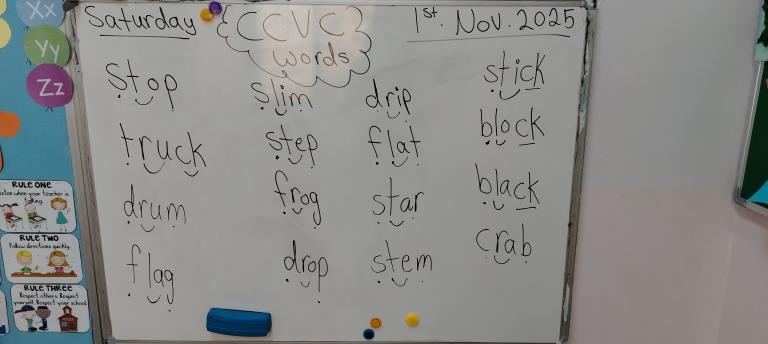 Xx
Yy
Zz
RULE ONE
Listen when your teacher is
talking.
RULE TWO
Follow directions quickly.
RULE THREE
Respect others. Respect
yourself. Respect your school.
Saturday
CCVC
words
1st. Nov. 2025
stop
truck
drum
flag
slim
step
frog
drop
drip
flat
star
stem
stick
block
black
crab